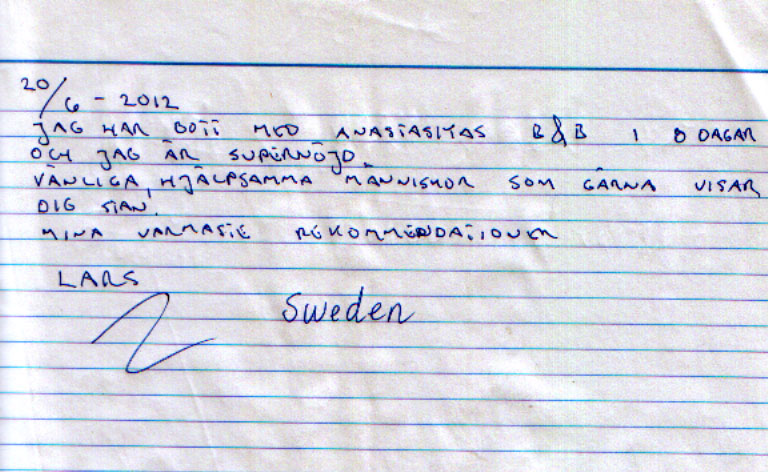 20/6 - 2012
JAG HAR BOTT MED ANASTASITAS B&B I 8 DAGAR
OCH JAG ÄR SUPERNÖJD.
VÄNLIGA, HJÄLPSAMMA MÄNNISKOR SOM GÄRNA VISAR
DIG STAN.
MINA VARMASTE REKOMMENDATIONER
LARS
Sweden